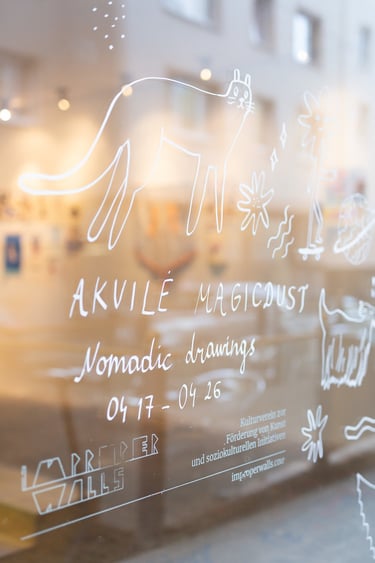 AKVILĖ MAGICDUST
Nomadic drawings
04 17 - 04 26
IMPROPER
WALLS
Kulturverein zur
Förderung von Kunst
und soziokulturellen Initiativen
improperwalls.com